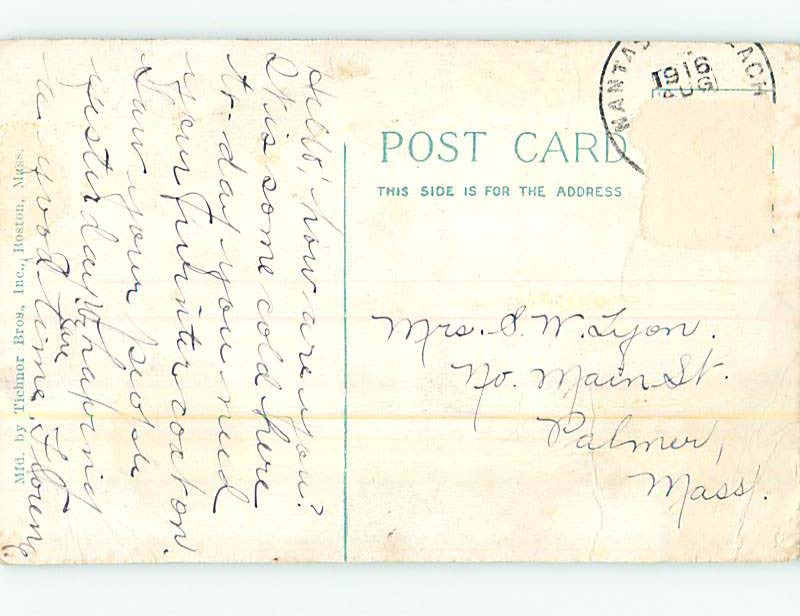 Hello, how are you?
It is some cold here
to-day you need
your winter coat on.
Saw your people
yesterday. We are having
a good time. Florence
Mfd. by Tichnor Bros., Inc., Boston, Mass.
POST CARD
THIS SIDE IS FOR THE ADDRESS
1916
AUG
Mrs. S. W. Lyon.
No. Main St.
Palmer,
Mass.